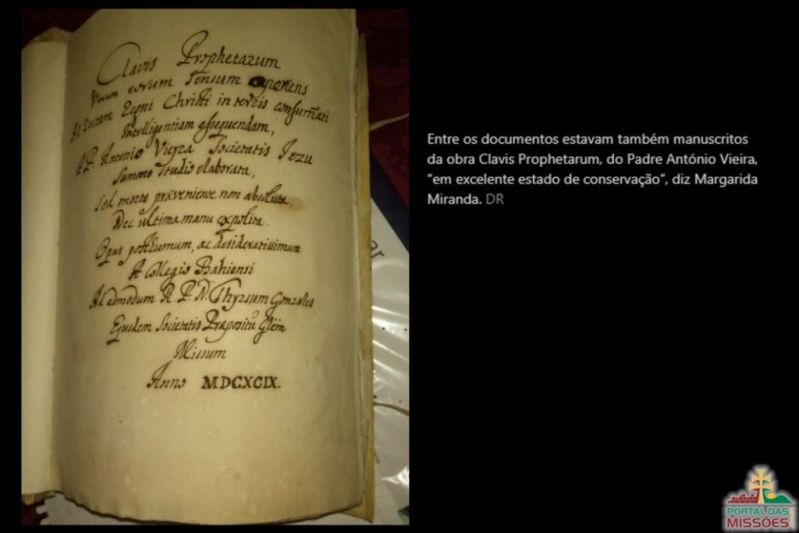 Clavis Prophetarum
Verum eorum Sensum aperiens
Ad rectam Regni Christi in terris consummati
Intelligentiam assequendam,
A P. Antonio Vieyra Societatis Iezu
Summo studio elaborata,
sed morte præveniente non absoluta,
Nec ultima manu expolita.
Opus posthumum, ac desideratissimum
A Collegio Bahiensi
Ad admodum R. P. N. Thyrsum Gonzales
Ejusdem Societatis Præpositũ Gñem
Missum
Anno MDCXCIX.
Entre os documentos estavam também manuscritos
da obra Clavis Prophetarum, do Padre António Vieira,
"em excelente estado de conservação", diz Margarida
Miranda. DR
PORTAL DAS
MISSÕES